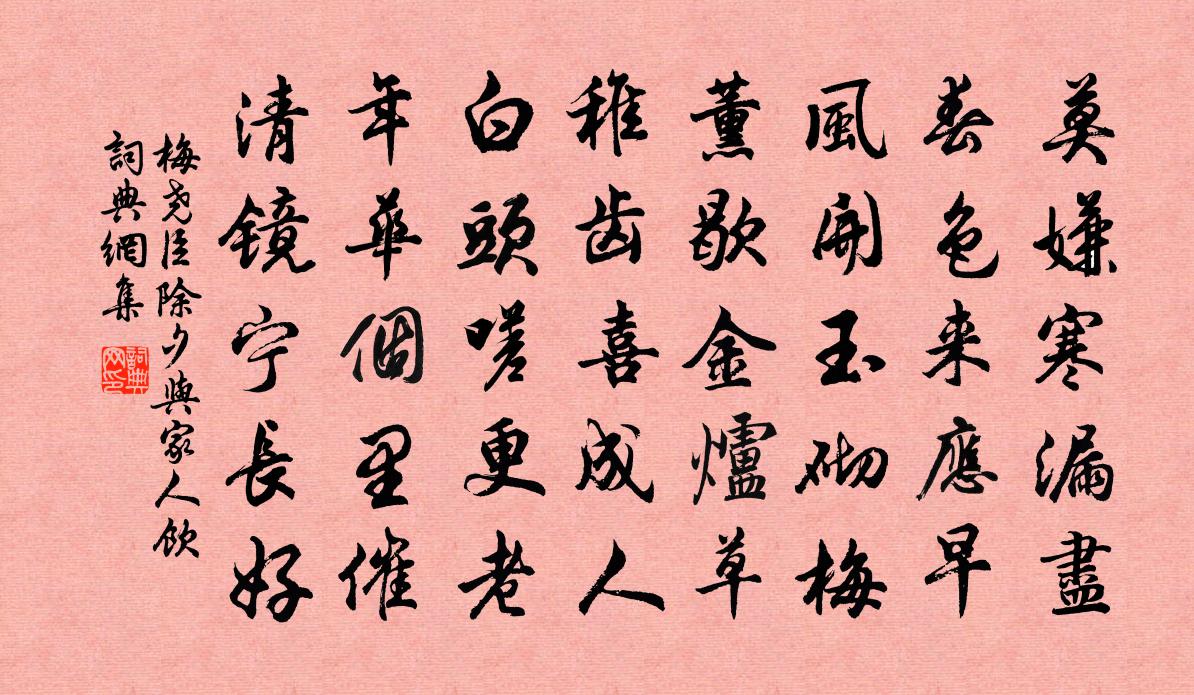 莫嫌寒漏盡
春色来應早
風開玉砌梅
薰歇金爐草
稚齿喜成人
白頭嗟更老
年華個里催
清镜宁長好
梅尧臣除夕與家人飲
詞典網集
詞典网印